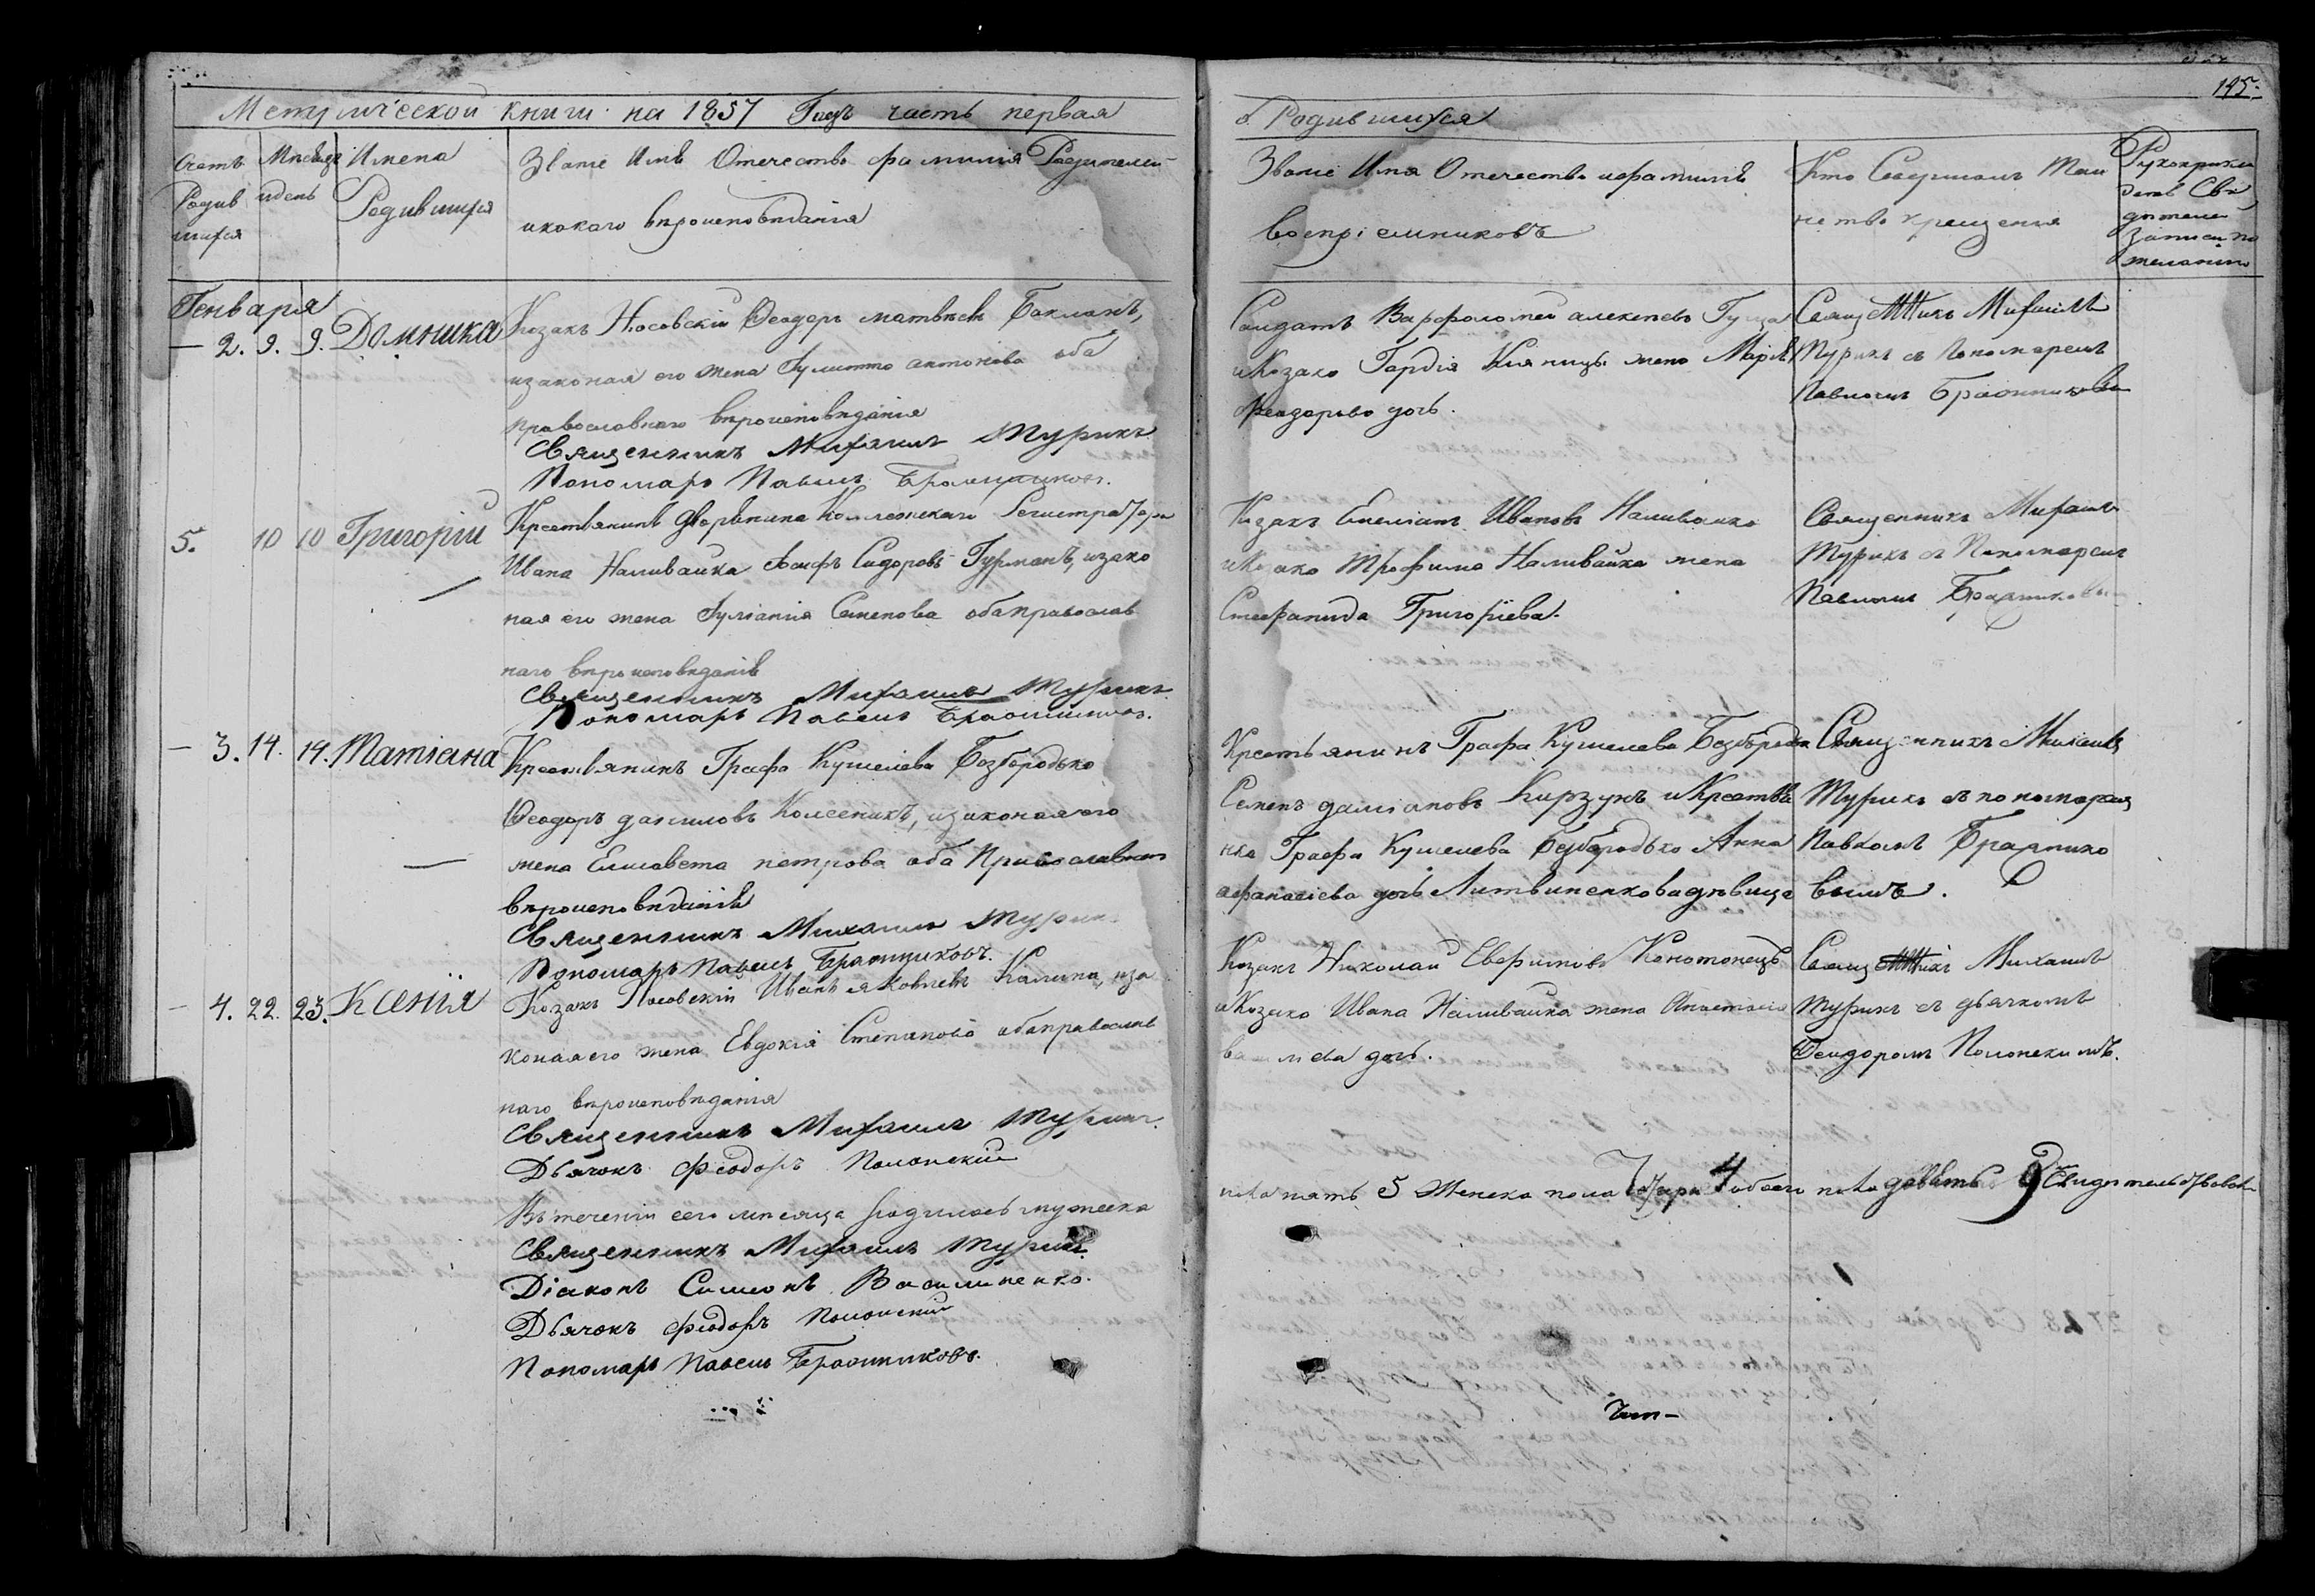 195.
Метрической книги на 1857 Годъ часть первая
о Родившихся
Счетъ Родив шихся
Мѣсяцъ и день
Имена Родившихся
Званіе Имя Отечество фамилія Родителей
и какаго вѣроисповѣданія
Званіе Имя Отечество и фамилія
Воспріемниковъ
Кто Совершалъ Таи
нство крещенія
Рукоприкл
дств Сви
дѣтелей
Записи по
желанію
Генваря
2. 9. 9. Домника
Козакъ Носовскій Ѳеодоръ матвѣевъ Бакланъ,
изаконая его жена Гулитта антонова оба
православнаго вѣроисповѣданія
Священникъ Михаилъ Турикъ
Пономарь Павелъ Братчиковъ.
Салдатъ Варфоломей алексѣевъ Гуща
и Козака Гордія Кияницы жена Марія
Феодорова дочь.
Священникъ Михаилъ
Турикъ съ Пономаремъ
Павломъ Братчиковым
5. 10 10 Григорій
Крестьянинъ дворянина Коллежскаго Регистратора
Ивана Наливайка Сидоровъ Гурманъ, изако
ная его жена Гуліанія Семенова оба православ
наго вѣроисповѣданія
Священникъ Михаилъ Турикъ
Пономарь Павелъ Братчиковъ.
Козакъ Емеліанъ Ивановъ Наливайко
и Козака Трофима Наливайка жена
Стефанида Григоріева.
Священникъ Михаилъ
Турикъ съ Пономаремъ
Павломъ Братчиковы
3. 14. 14. Татіана
Крестьянинъ Графа Кушелева Безбородько
Ѳеодоръ даниловъ Колесникъ, изаконая его
жена Елисавета петрова оба Православнаго
вѣроисповѣданія
Священникъ Михаилъ Турик
Пономарь Павелъ Братчиковъ.
Крестьянинъ Графа Кушелева Безбородка
Семенъ даміановъ Кирзунъ и Крестья
нка Графа Кушелева Безбородько Анна
афанасіева дочь Литвиненкова дѣвица
Священникъ Михаилъ
Турикъ съ пономаремъ
Павломъ Братчико
вымъ.
4. 22. 23. Ксенія
Козакъ Носовскій Иванъ яковлевъ Калина, иза
коная его жена Евдокія Степанова оба православ
наго вѣроисповѣданія
Священникъ Михаилъ Турикъ.
Дьячокъ Феодоръ Полонскій
Козакъ Николай Евфимовъ Конотопецъ
и Козака Ивана Наливайка жена Анастасія
дочь.
Священникъ Михаилъ
Турикъ съ дьячкомъ
Ѳеодоромъ Полонскимъ.
Въ теченіи сего мѣсяца родилось мужеска
пола пять 5 Женска пола четыри 4 обоего пола девять 9 Свидѣтельствовали
Священникъ Михаилъ Турикъ.
Діаконъ Симеонъ Василиненко.
Дьячокъ Феодоръ Полонскій
Пономарь Павелъ Братчиковъ.